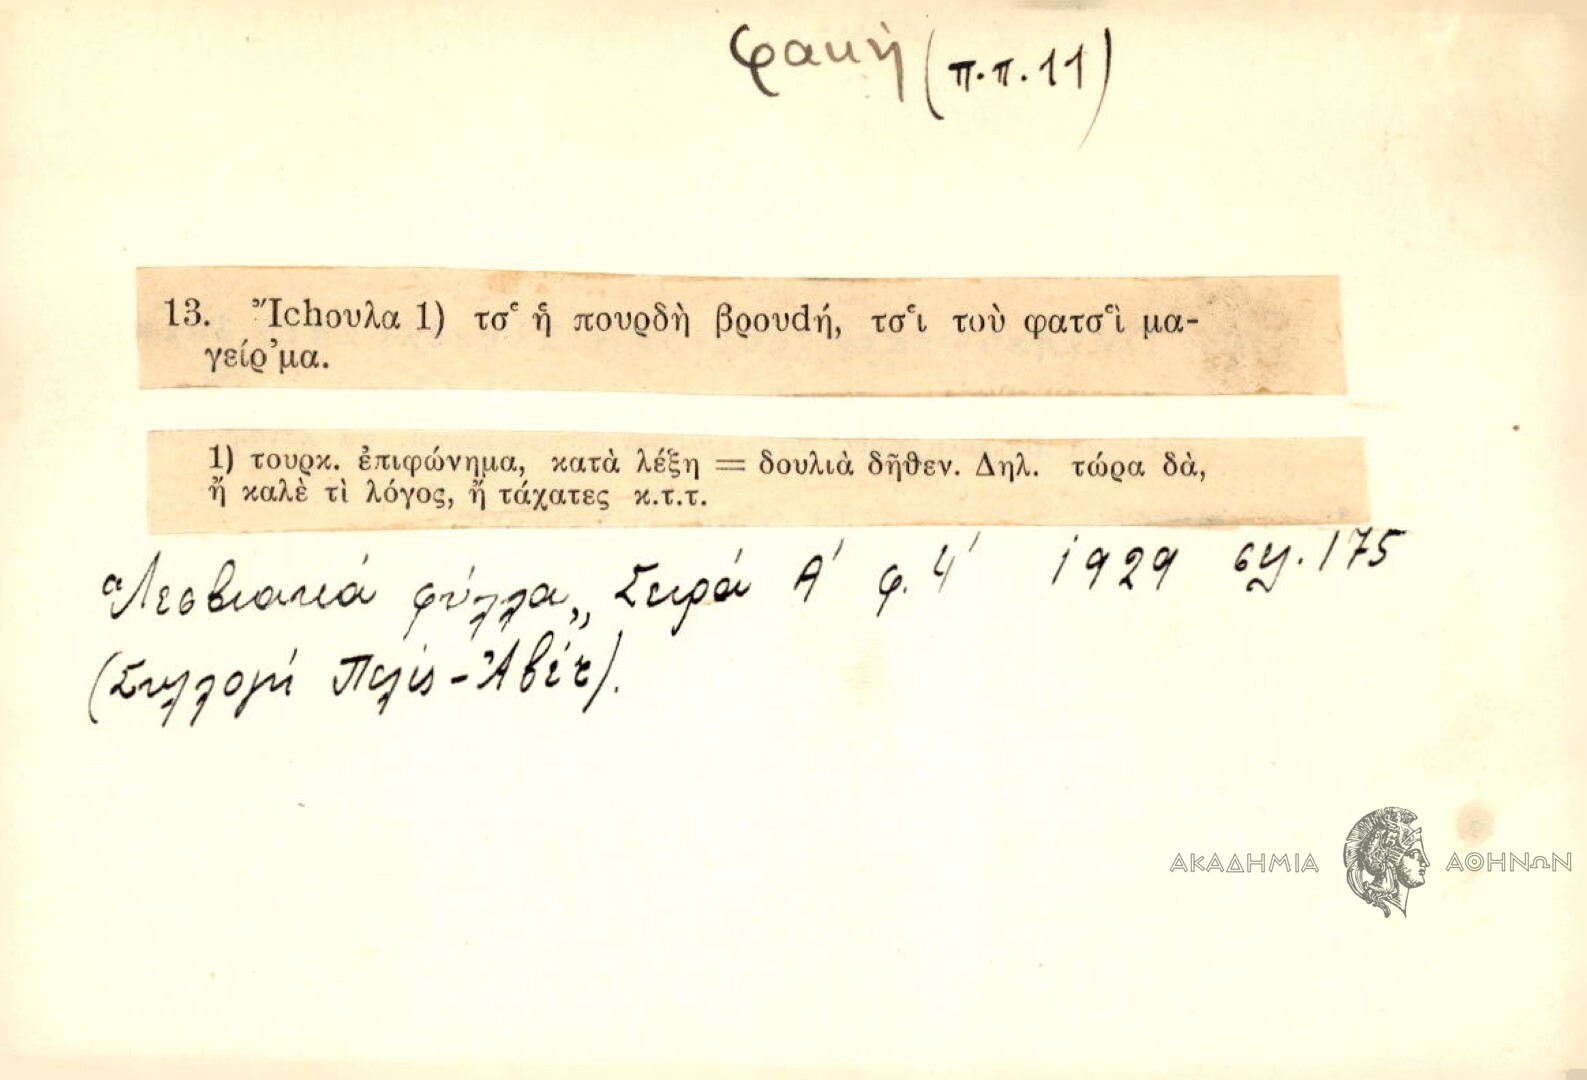 φακή (π.π. 11)
13. Ἴchουλα 1) τσ̔ ἡ πουρδὴ βρουdή, τσ̔ι τοὺ φατσ̔ὶ μα-
γείρ᾿μα.
1) τουρκ. ἐπιφώνημα, κατὰ λέξη = δουλιὰ δῆθεν. Δηλ. τώρα δὰ,
ἤ καλὲ τὶ λόγος, ἤ τάχατες κ.τ.τ.
"Λεσβιακά φύλλα,, Σειρά Α' φ. 4' 1929 σελ. 175
(Συλλογή Πελίς - Ἀβέτ).
ΑΚΑΔΗΜΙΑ ΑΘΗΝΩΝ